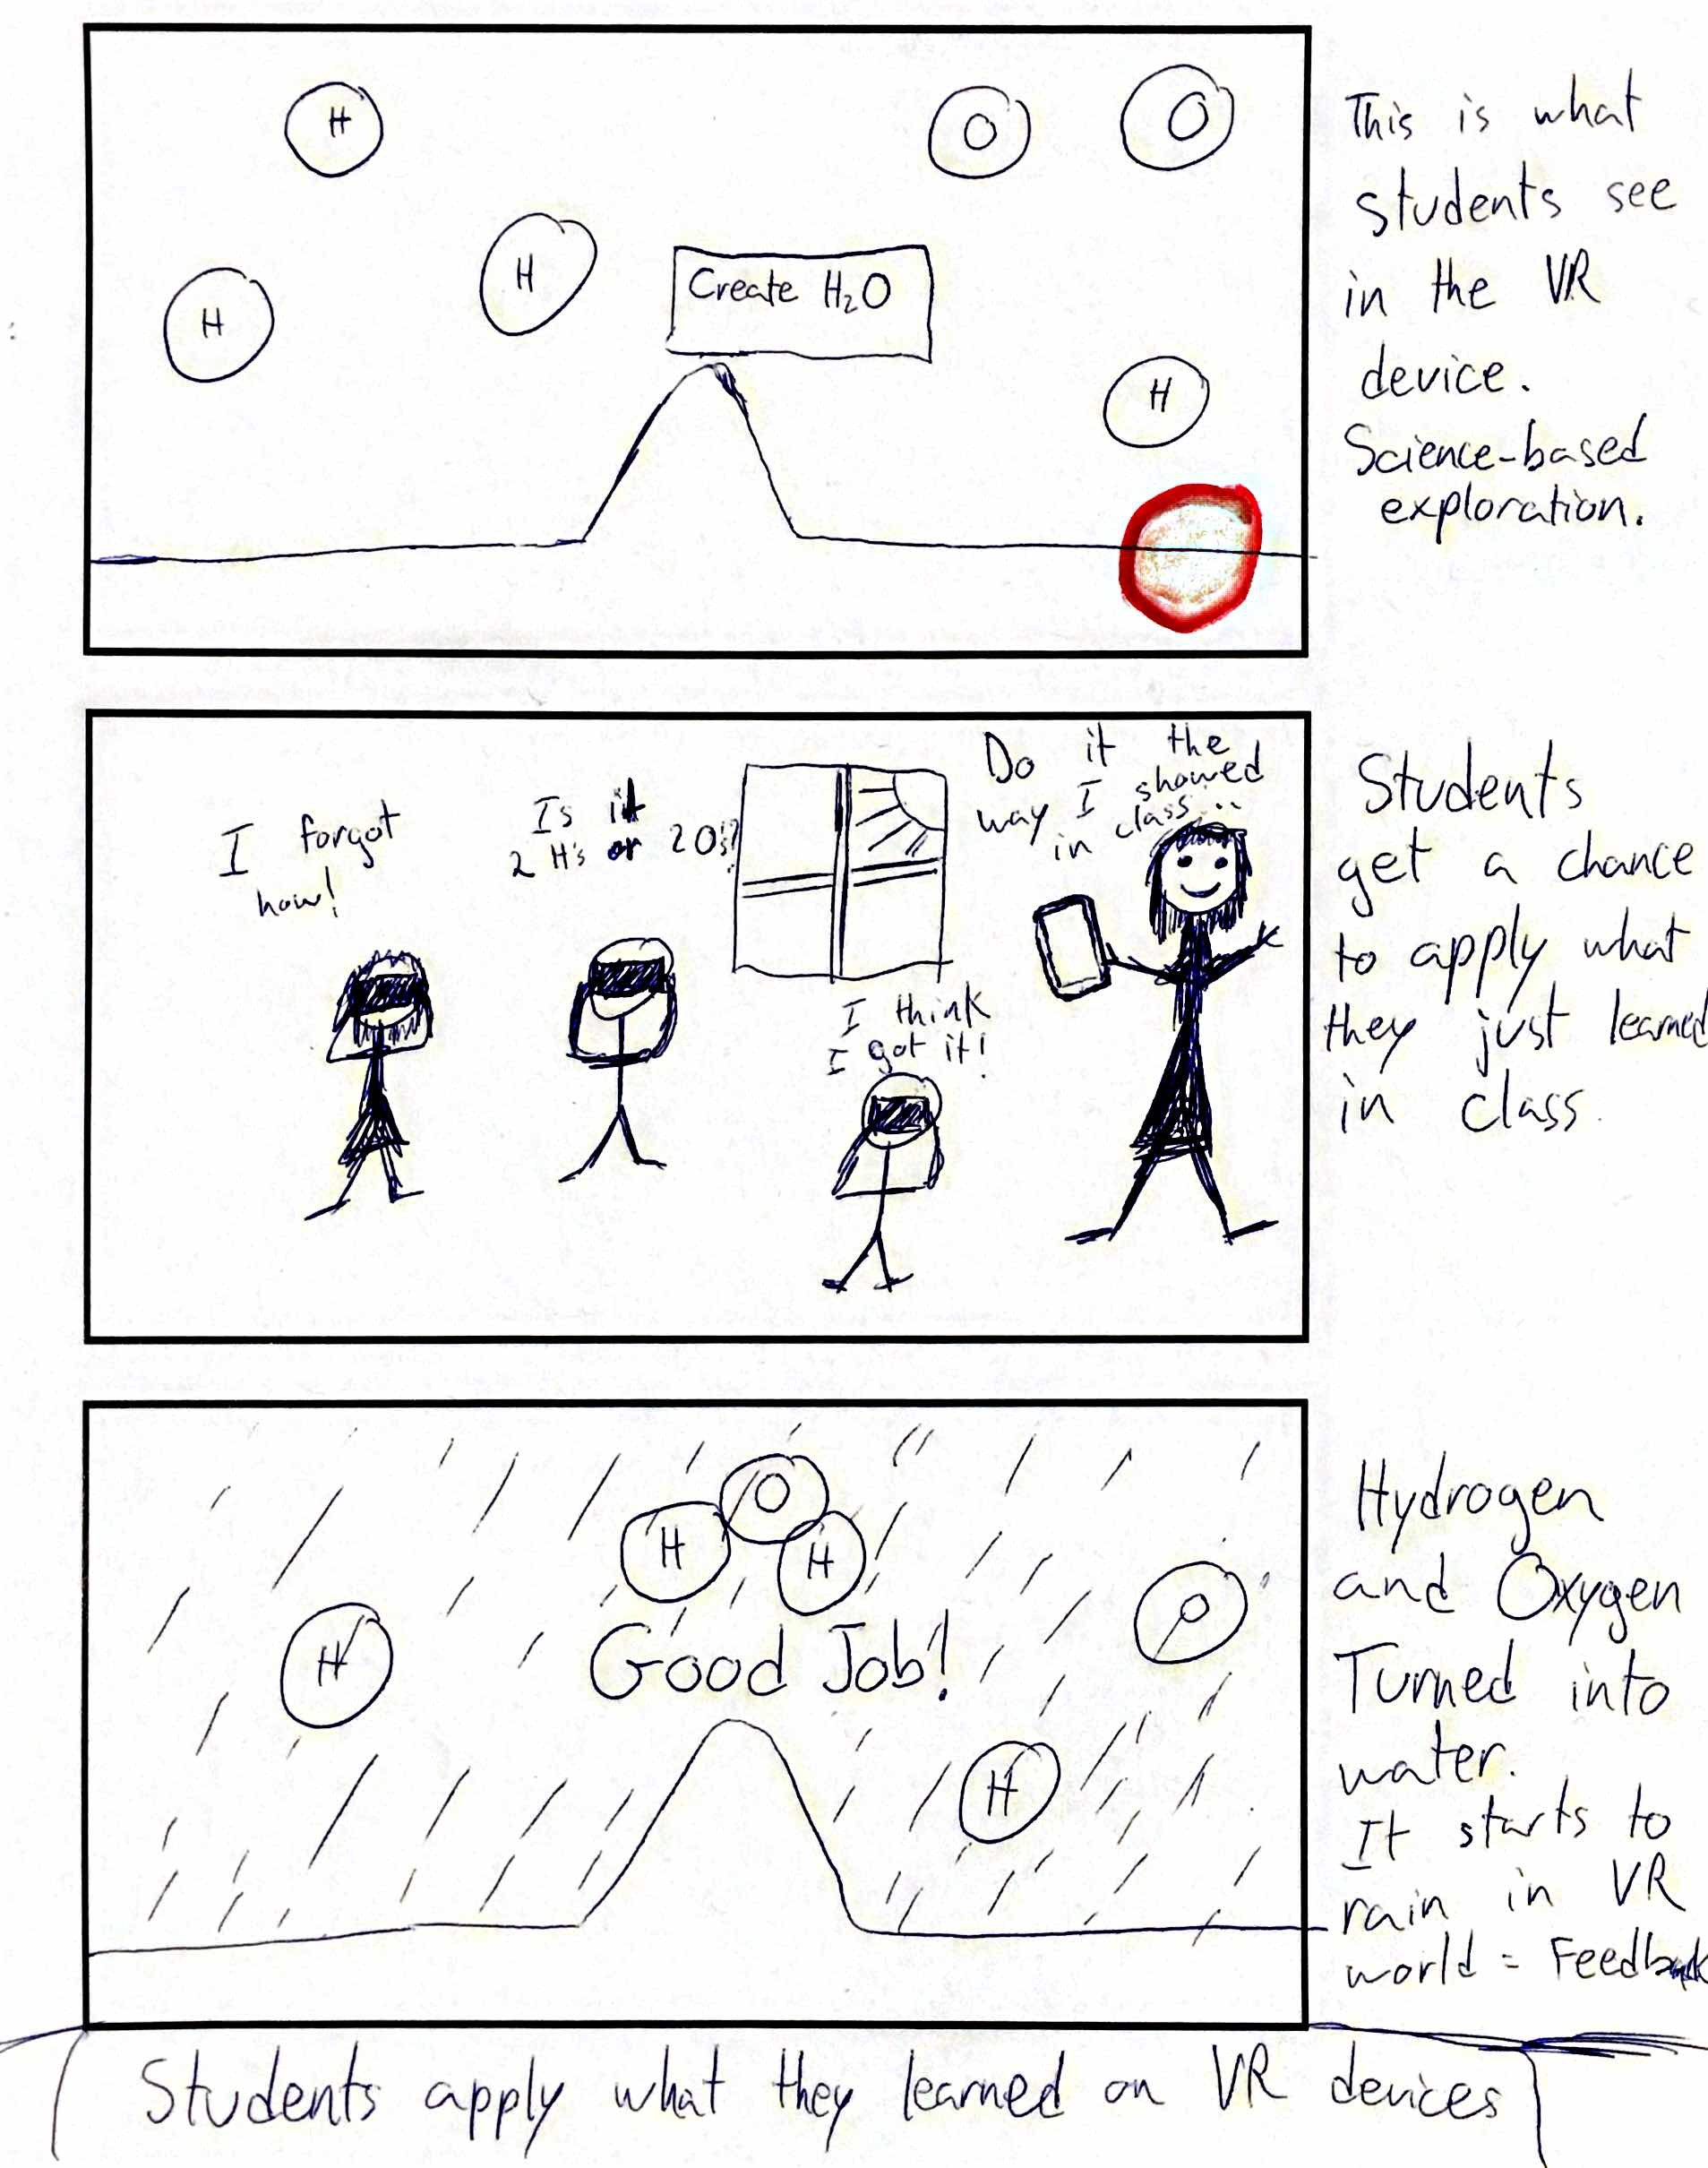 H
O
O
H
H
Create H₂O
H
This is what
students see
in the VR
device.
Science-based
exploration.
I forgot
how!
Is it
2 H's or 2 O's?
Do it the
way I showed
in class...
I think
I got it!
Students
get a chance
to apply what
they just learned
in class.
O
H
H
H
O
Good Job!
H
Hydrogen
and Oxygen
Turned into
water.
It starts to
rain in VR
world = Feedback
Students apply what they learned on VR devices